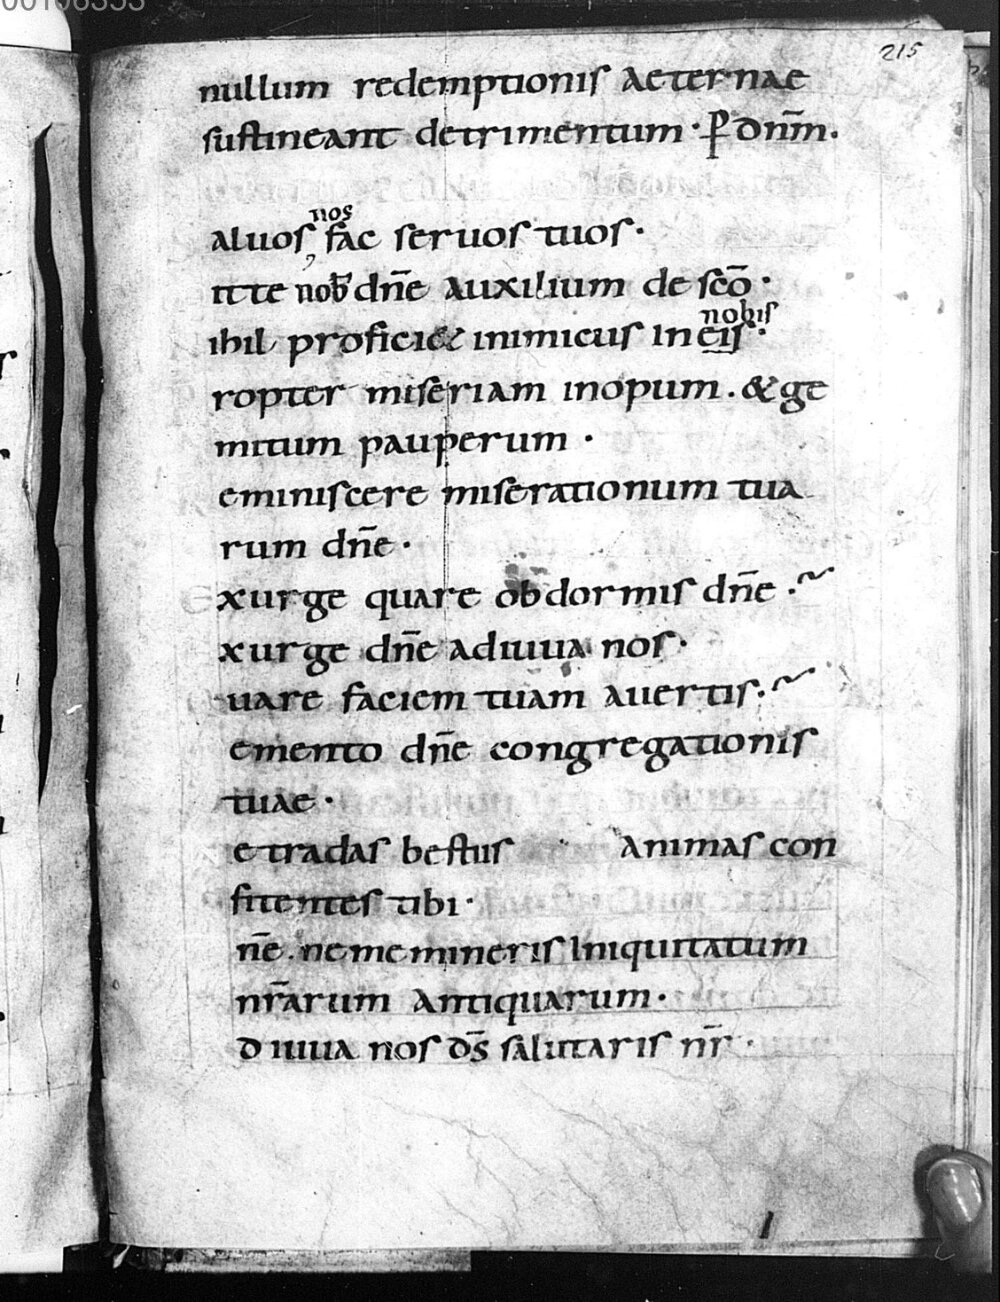 00106353
215
nullum redemptionis aeternae
sustineant detrimentum · p̱ dnm̄.
nos
aluos, fac seruos tuos ·
itte nob̄ dn̄e auxilium de scō ·
nobis
ihil proficiet inimicus in eis ·
ropter miseriam inopum . & ge
mitum pauperum ·
eminiscere miserationum tua
rum dn̄e ·
xurge quare obdormis dn̄e ·~
xurge dn̄e adiuua nos ·
uare faciem tuam auertis ·~
emento dn̄e congregationis
tuae ·
e tradas bestiis animas con
fitentes tibi ·
n̄e . ne memineris iniquitatum
nr̄arum antiquarum ·
diuua nos d̄s salutaris nr̄ ·